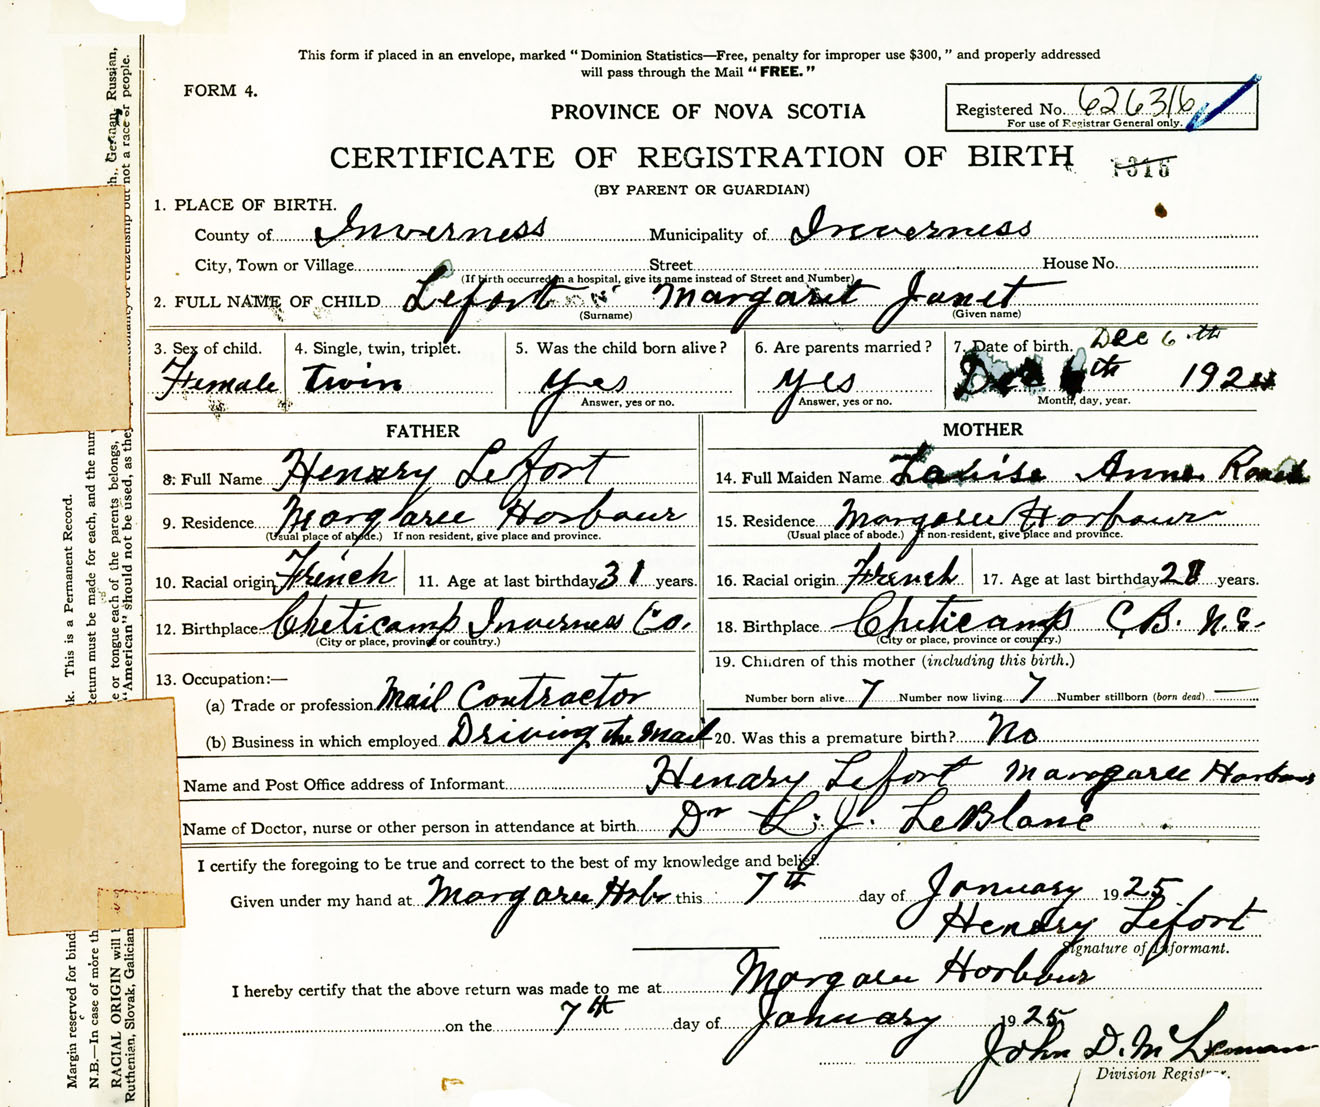 This form if placed in an envelope, marked “Dominion Statistics—Free, penalty for improper use $300,” and properly addressed
will pass through the Mail “FREE.”
FORM 4.
PROVINCE OF NOVA SCOTIA
Registered No. 626316
For use of Registrar General only.
CERTIFICATE OF REGISTRATION OF BIRTH
(BY PARENT OR GUARDIAN)
1. PLACE OF BIRTH.
County of Inverness Municipality of Inverness
City, Town or Village Street House No.
(If birth occurred in a hospital, give its name instead of Street and Number)
2. FULL NAME OF CHILD Lefort Margaret Janet
(Surname) (Given name)
3. Sex of child. 4. Single, twin, triplet. 5. Was the child born alive? 6. Are parents married? 7. Date of birth. Dec 6th
Female twin Yes Yes Dec th 1924
Answer, yes or no. Answer, yes or no. Month, day, year.
FATHER MOTHER
8. Full Name Henary Lefort 14. Full Maiden Name Anne
9. Residence Margaree Harbour 15. Residence Margaree Harbour
(Usual place of abode.) If non resident, give place and province. (Usual place of abode.) If non-resident, give place and province.
10. Racial origin French 11. Age at last birthday 31 years. 16. Racial origin French 17. Age at last birthday 28 years.
12. Birthplace Cheticamp Inverness Co. 18. Birthplace Cheticamp C.B. N.S.
(City or place, province or country.) (City or place, province or country.)
13. Occupation:— 19. Children of this mother (including this birth.)
(a) Trade or profession Mail Contractor Number born alive 7 Number now living 7 Number stillborn (born dead) —
(b) Business in which employed Driving the Mail 20. Was this a premature birth? No
Name and Post Office address of Informant Henary Lefort Margaree Harbour
Name of Doctor, nurse or other person in attendance at birth Dr L. J. LeBlanc
I certify the foregoing to be true and correct to the best of my knowledge and belief.
Given under my hand at Margaree Hrbr this 7th day of January 1925
Henary Lefort
Signature of Informant.
I hereby certify that the above return was made to me at Margaree Harbour
on the 7th day of January 1925
John D.
Division Registrar.
Margin reserved for bind
nk. This is a Permanent Record.
N.B.—In case of more th
eturn must be made for each, and the num
RACIAL ORIGIN will b
e or tongue each of the parents belongs,
Ruthenian, Slovak, Galician
“American” should not be used, as they
citizenship but not a race or people.
German, Russian,